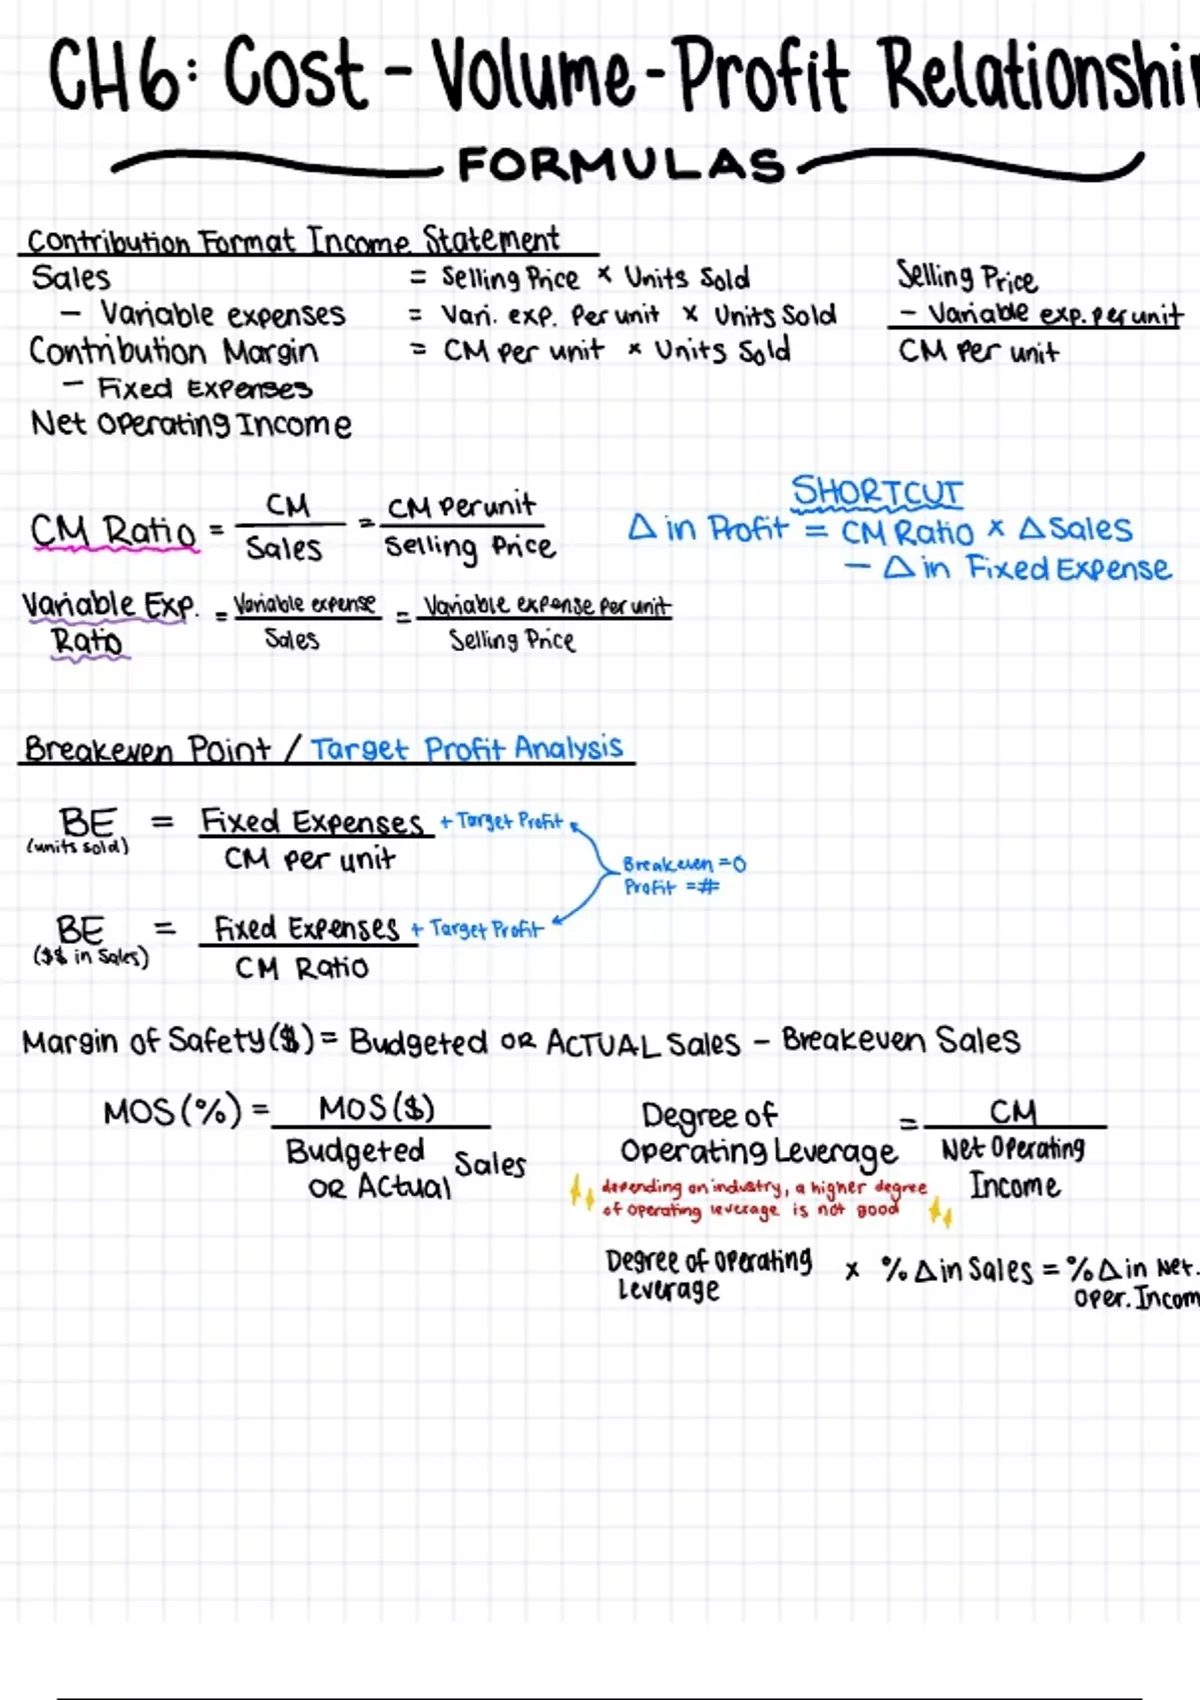 CH6: Cost - Volume - Profit Relationshi
FORMULAS
Contribution Format Income Statement
Sales = Selling Price × Units Sold
- Variable expenses = Vari. exp. Per unit × Units Sold
Contribution Margin = CM per unit × Units Sold
- Fixed Expenses
Net Operating Income
Selling Price
- Variable exp. per unit
CM per unit
CM Ratio = CM / Sales = CM Per unit / Selling Price
SHORTCUT
Δ in Profit = CM Ratio × Δ Sales
- Δ in Fixed Expense
Variable Exp. Ratio = Variable expense / Sales = Variable expense per unit / Selling Price
Breakeven Point / Target Profit Analysis
BE (units sold) = Fixed Expenses + Target Profit / CM per unit
Breakeven = 0
Profit = #
BE ($$ in Sales) = Fixed Expenses + Target Profit / CM Ratio
Margin of Safety ($) = Budgeted OR ACTUAL Sales - Breakeven Sales
MOS (%) = MOS ($) / Budgeted OR Actual Sales
Degree of Operating Leverage = CM / Net Operating Income
depending on industry, a higher degree
of operating leverage is not good
Degree of Operating Leverage × % Δ in Sales = % Δ in Net. Oper. Incom